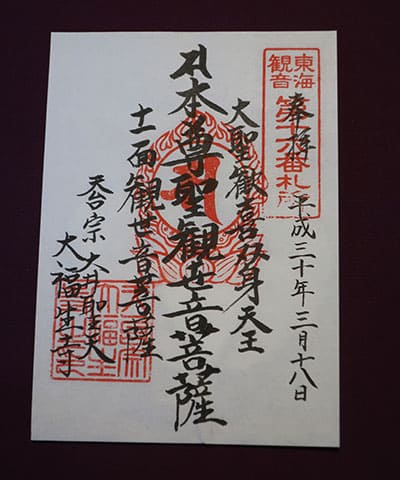 東海
観音
第十六番札所
奉拝 平成三十年三月十八日
大聖歓喜双身天王
本尊聖観世音菩薩
十一面観世音菩薩
天台宗 大井聖天
大福生寺